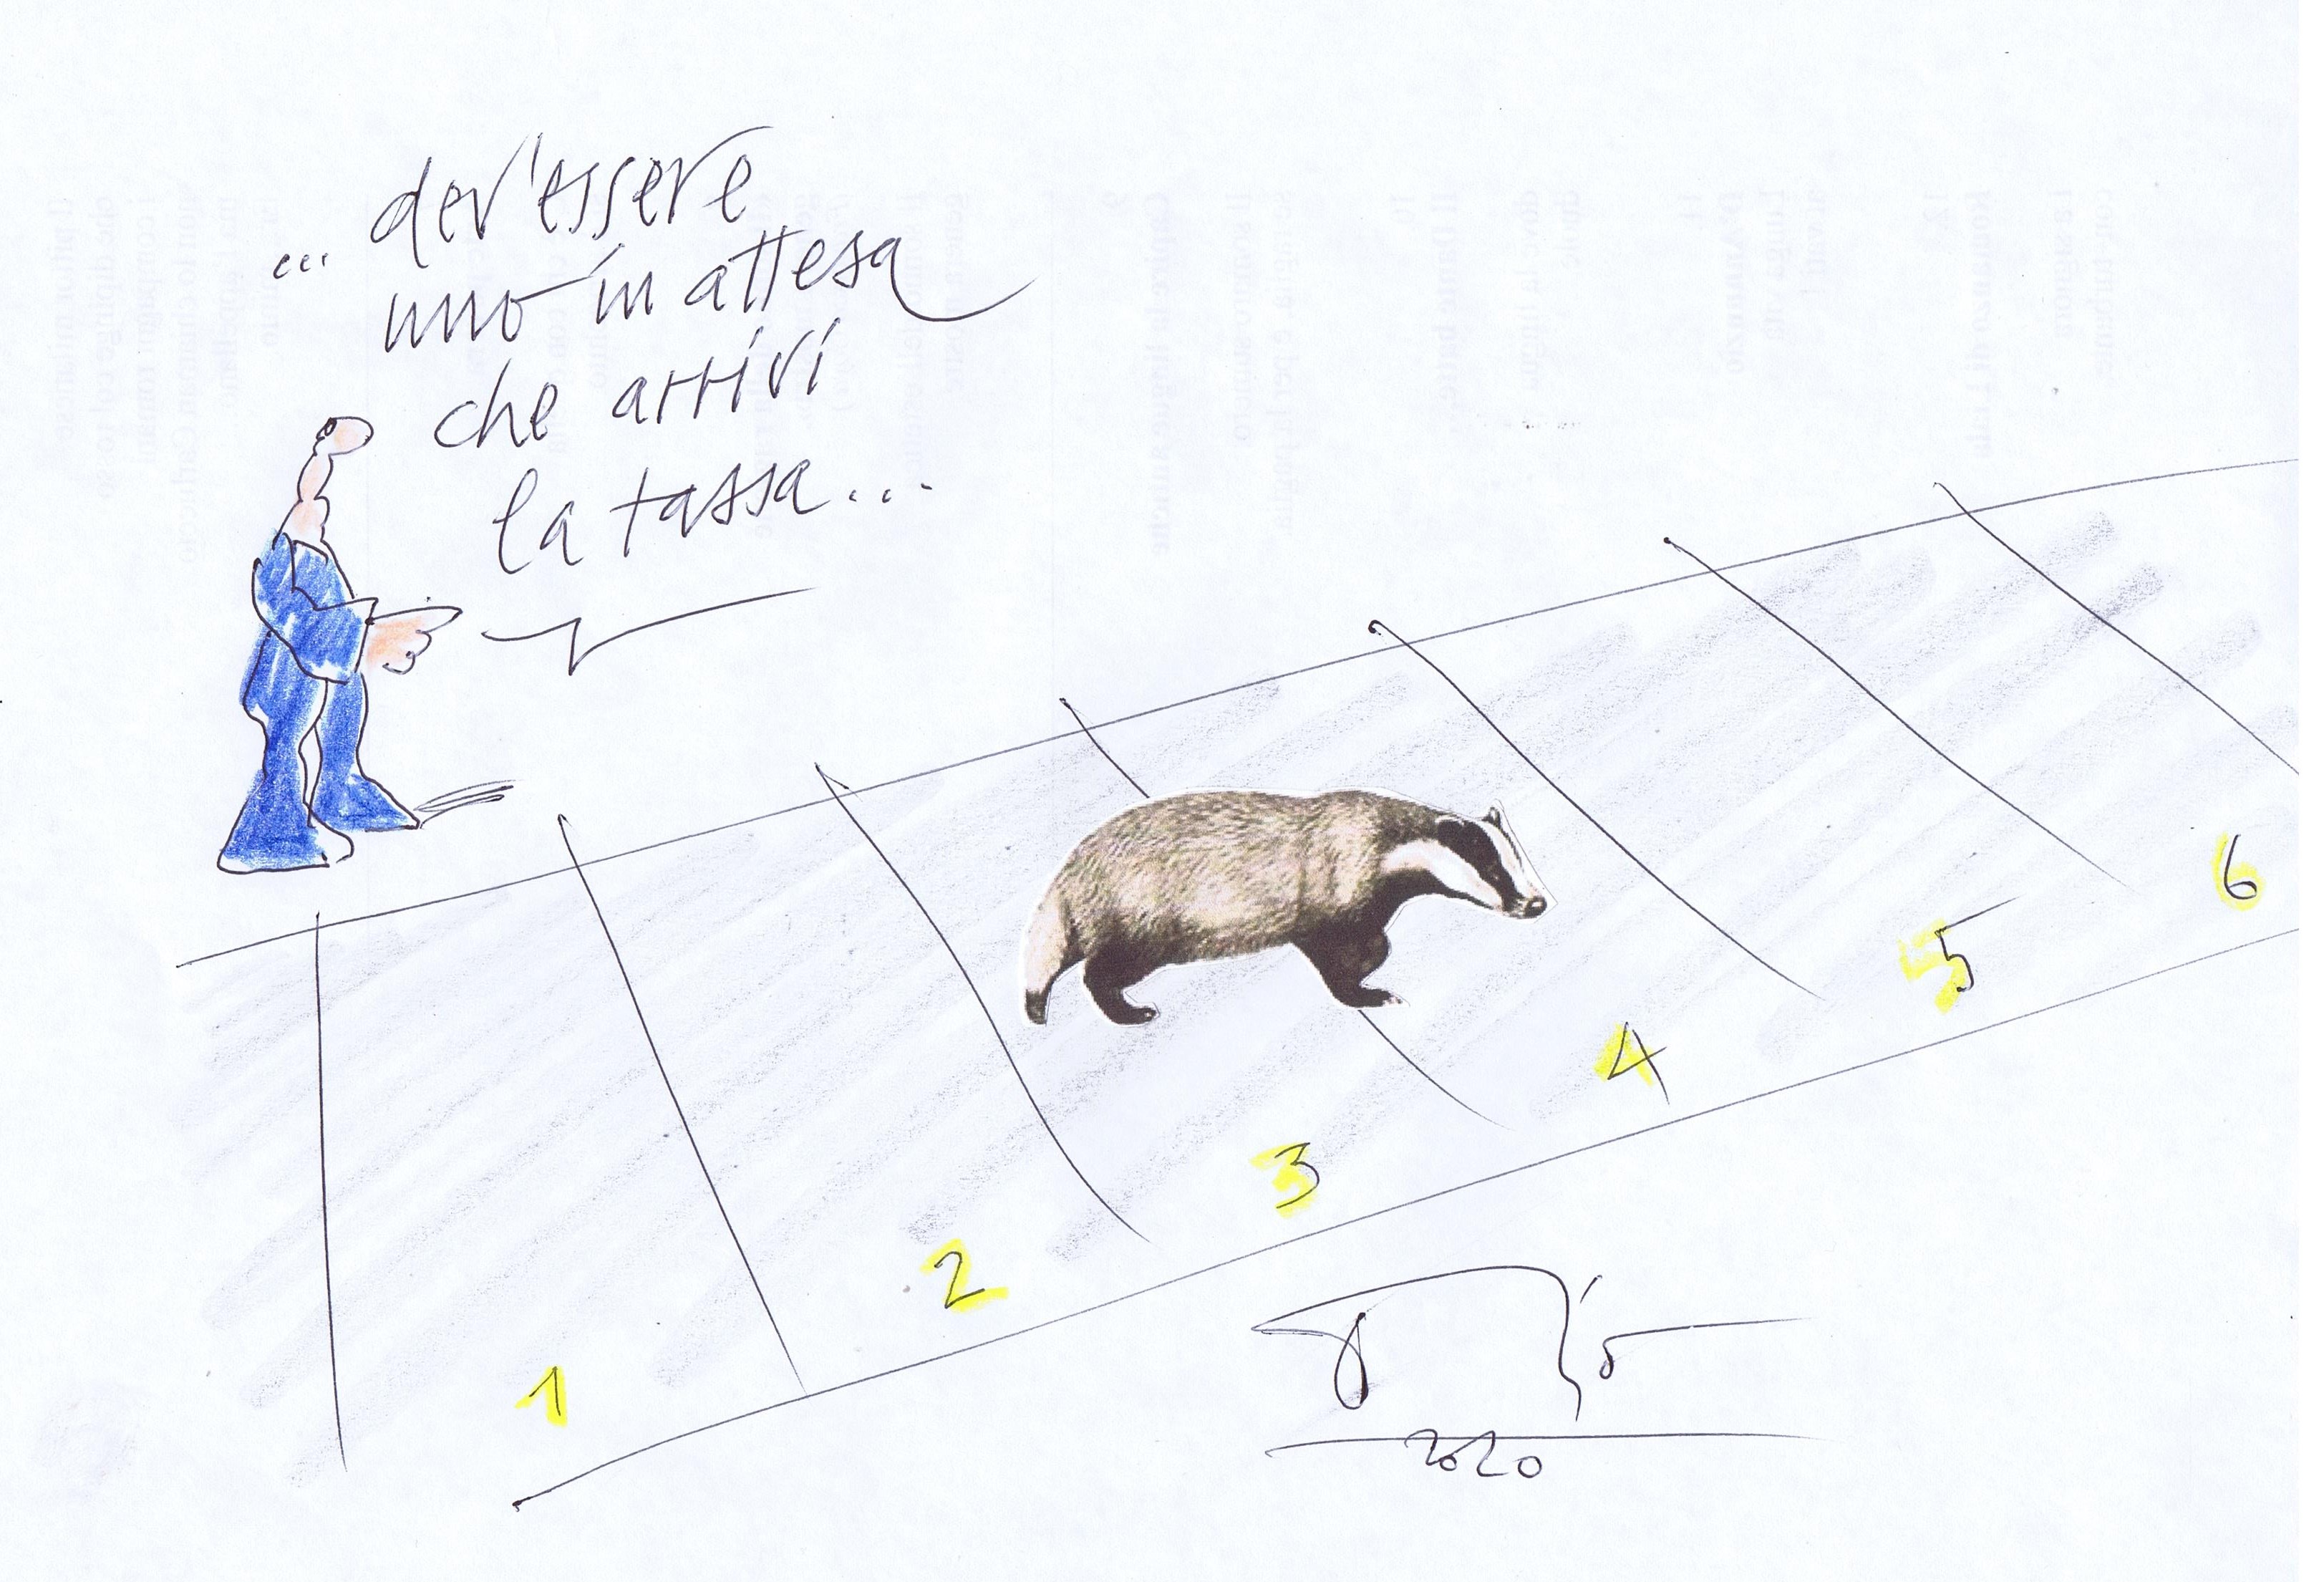 ... dev'essere
uno in attesa
che arrivi
la tassa...
1
2
3
4
5
6
2020